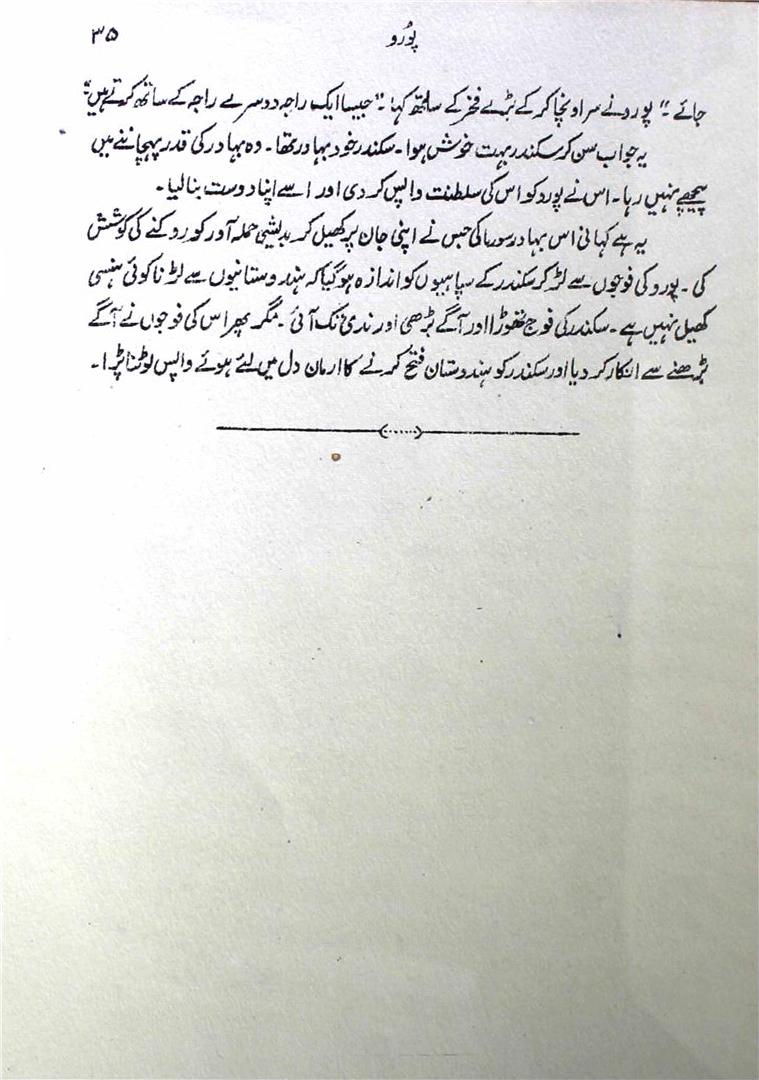 پوُرو ۳۵
جائے۔" پورو نے سر اونچا کر کے بڑے فخر کے ساتھ کہا۔ "جیسا ایک راجہ دوسرے راجہ کے ساتھ کرتے ہیں"
یہ جواب سن کر سکندر بہت خوش ہوا۔ سکندر خود بہادر تھا۔ وہ بہادر کی قدر پہچاننے میں
پیچھے نہیں رہا۔ اس نے پورو کو اس کی سلطنت واپس کر دی اور اسے اپنا دوست بنا لیا۔
یہ ہے کہانی اس بہادر سورما کی جس نے اپنی جان پر کھیل کر بدیشی حملہ آور کو روکنے کی کوشش
کی۔ پورو کی فوجوں سے لڑ کر سکندر کے سپاہیوں کو اندازہ ہو گیا کہ ہندوستانیوں سے لڑنا کوئی ہنسی
کھیل نہیں ہے۔ سکندر کی فوج تھوڑا اور آگے بڑھی اور ندی تک آئی۔ مگر پھر اس کی فوجوں نے آگے
بڑھنے سے انکار کر دیا اور سکندر کو ہندوستان فتح کرنے کا ارمان دل میں لئے ہوئے واپس لوٹنا پڑا۔